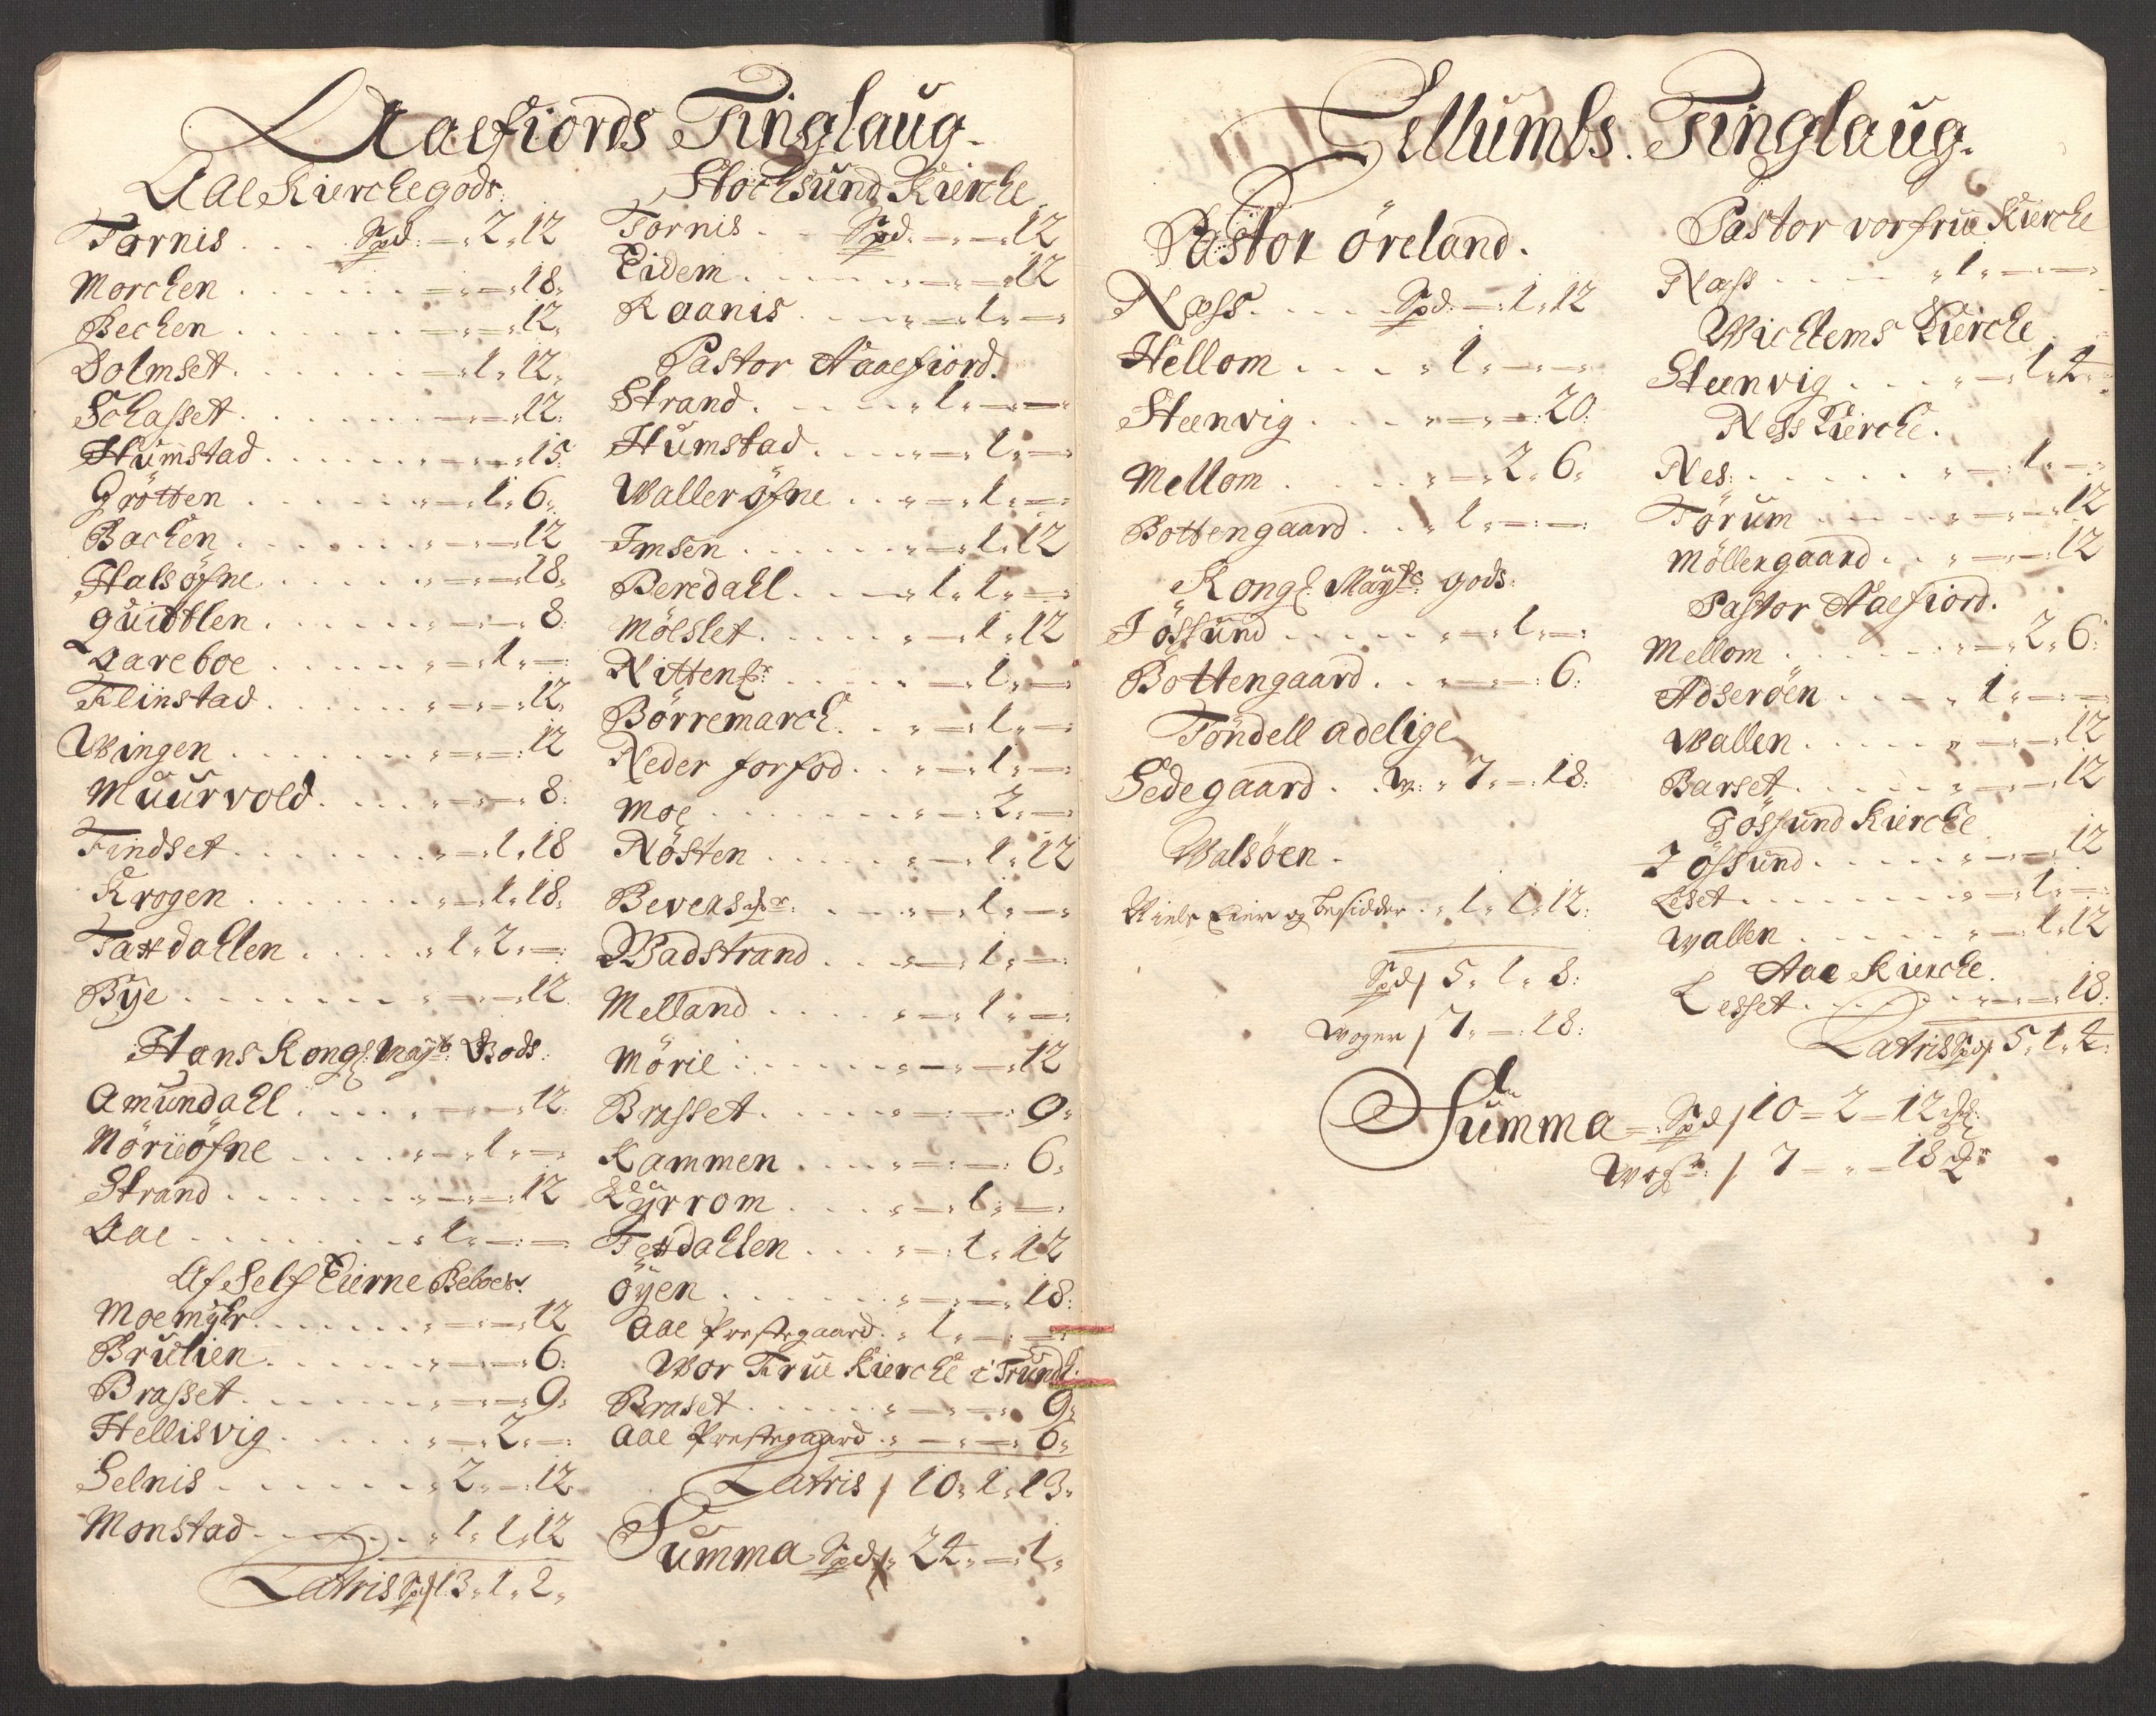 Aaefiords Tinglaug.
Aae Kierckegods:
Tørnis . . . . Spd: — „ 2 „ 12
Morcken . . . . . — „ — „ 18 „
Becken . . . . . — „ — „ 12 „
Dolmset . . . . . — „ 1 „ 12 „
Schasset . . . . . — „ — „ 12:
Humstad . . . . . „ — „ — „ 15:
Grötten . . . . . „ — „ 1 „ 6 „
Backen . . . . . „ — „ — „ 12
Halsöfne . . . . . „ — „ — „ 18 „
quitblen . . . . . „ — „ — „ 8:
Lareboe . . . . . „ — „ 1 „ —:
Flinstad . . . . . „ — „ — „ 12,
Wingen . . . . . „ — „ —: 12
Muurvold . . . . . „ — „ — „ 8:
Findset . . . . . „ — „ 1 „ 18
Krogen . . . . . „ — „ 1 „ 18 „
Taxdahlen . . . . . „ 1 „ 2 „ —:
Bÿe . . . . . „ — „ — „ 12
Hans Kongl: Mayts: Gods:
Amundahl . . . . . „ — „ — „ 12:
Möriiöfne . . . . . „ — „ 1 „ —
Strand . . . . . „ — „ —: 12
Aae . . . . . „ 1 „ —: —
Af Self Eierne Beboer:
Moemyhr . . . . . „ — „ — „ 12
Brulien . . . . . „ — „ — „ 6:
Brasset . . . . . „ — „ — „ 9:
Hellisvig . . . . . „ — „ 2 „ —:
Selnis . . . . . „ 2 „ —: 12
Monstad . . . . . „ 1 „ 1 „ 12
Latris Spd/ 13 „ 1 „ 2 „
Stocksund Kircke
Tørnis . . Spd. — „ — „ 12
Eidem . . . . . „ — „ — „ 12
Raanis . . . . . „ — „ 1 „ —
Pastor Aaaefiord.
Strand . . . . . „ 1 „ — „ —
Humstad . . . . . „ — „ 1 „ —
Walleröfne . . „ — „ 1 „ —:
Imsen . . . . . „ — „ 1 „ 12
Beredahl . . . — „ 1 „ 1 „ —
Mölslet . . . . . „ — „ 1 „ 12
Nitten . . . . . — „ 1 „ —
Börremarck . . „ — „ 1 „ —:
Neder forfod . . „ — „ 1 „ —:
Moe . . . . . „ —: 2 „ —
Nösten . . . . . „ — „ 1 „ 12
. . . . . — „ 1 „ —
Badstrand . . . „ — „ 1 „ —:
Melland . . . . . „ — „ 1 „ —:
Mörie . . . . . „ — „ —: 12
Brasset . . . . . „ —: —: 9:
Kammen . . . . . „ —: —: 6:
Kyrrom . . . . . „ — „ 1 „ —:
Texdahlen . . . „ —: 1 „ 12
öyen . . . . . „ — „ —: 18:
Aae Prestegaard . „ 1 „ — „ —
Wor Frue Kiercke i Trundh:
Braset . . . . . „ — „ — „ 9:
Aae Prestegaard . „ — „ — „ 6:
Latris / 10 „ 1 „ 23 „
Summa Spd/ 24 „ —: 1 „
Tellumbs. Tinglaug.
Pastor öreland.
Næss . . . . . Spd. —: 1 „ 12
Hellom . . . . „ 1 „ — „ —
Steenvig . . . . „ — „ —: 20:
Mellom . . . . . „ — „ 2 „ 6 „
Bottengaard . . . „ 1 „ —: —:
Kongl: Mayts: gods:
Jössund . . . . . „ — „ 1 „ —:
Bottengaard . . . „ — „ —: 6:
Töndell adelige
Sedegaard . . w: „ 7 „ —: 18:
Walsöen .
Niels Eier og besidder . „ 1 „ 1 „ 12:
Spd/ 5 „ 1 „ 8:
Woger / 7 „ —: 18:
Pastor vorfrue Kiercke
Næss . . . . . „ 1 „ — —
Wicklems Kiercke
Steenvig . . . . „ — „ 1 „ 2 „
Ness Kiercke.
Nes: . . . . . „ —: 1 „ —
Törum . . . . . „ — „ — „ 12
Möllergaard . . „ — „ —: 12
Pastor Aaefiord.
Mellom . . . . . „ — „ 2 „ 6:
Adseröen . . . . „ 1 „ —: —
Wallen . . . . . „ — „ — „ 12
Barset . . . . . „ — „ — „ 12
Jössund Kiercke
Jössund . . . . . „ — „ — „ 12
Leset . . . . . „ — „ 1 „ —:
Wallen . . . . . „ — „ 1 „ 12
Aae Kiercke.
Lesset . . . . . „ — „ — „ 18:
Latris Spd/ 5 „ 1 „ 4:
Summa —: Spd/ 10 — 2 — 12
Wogr: / 7 — „ — 18